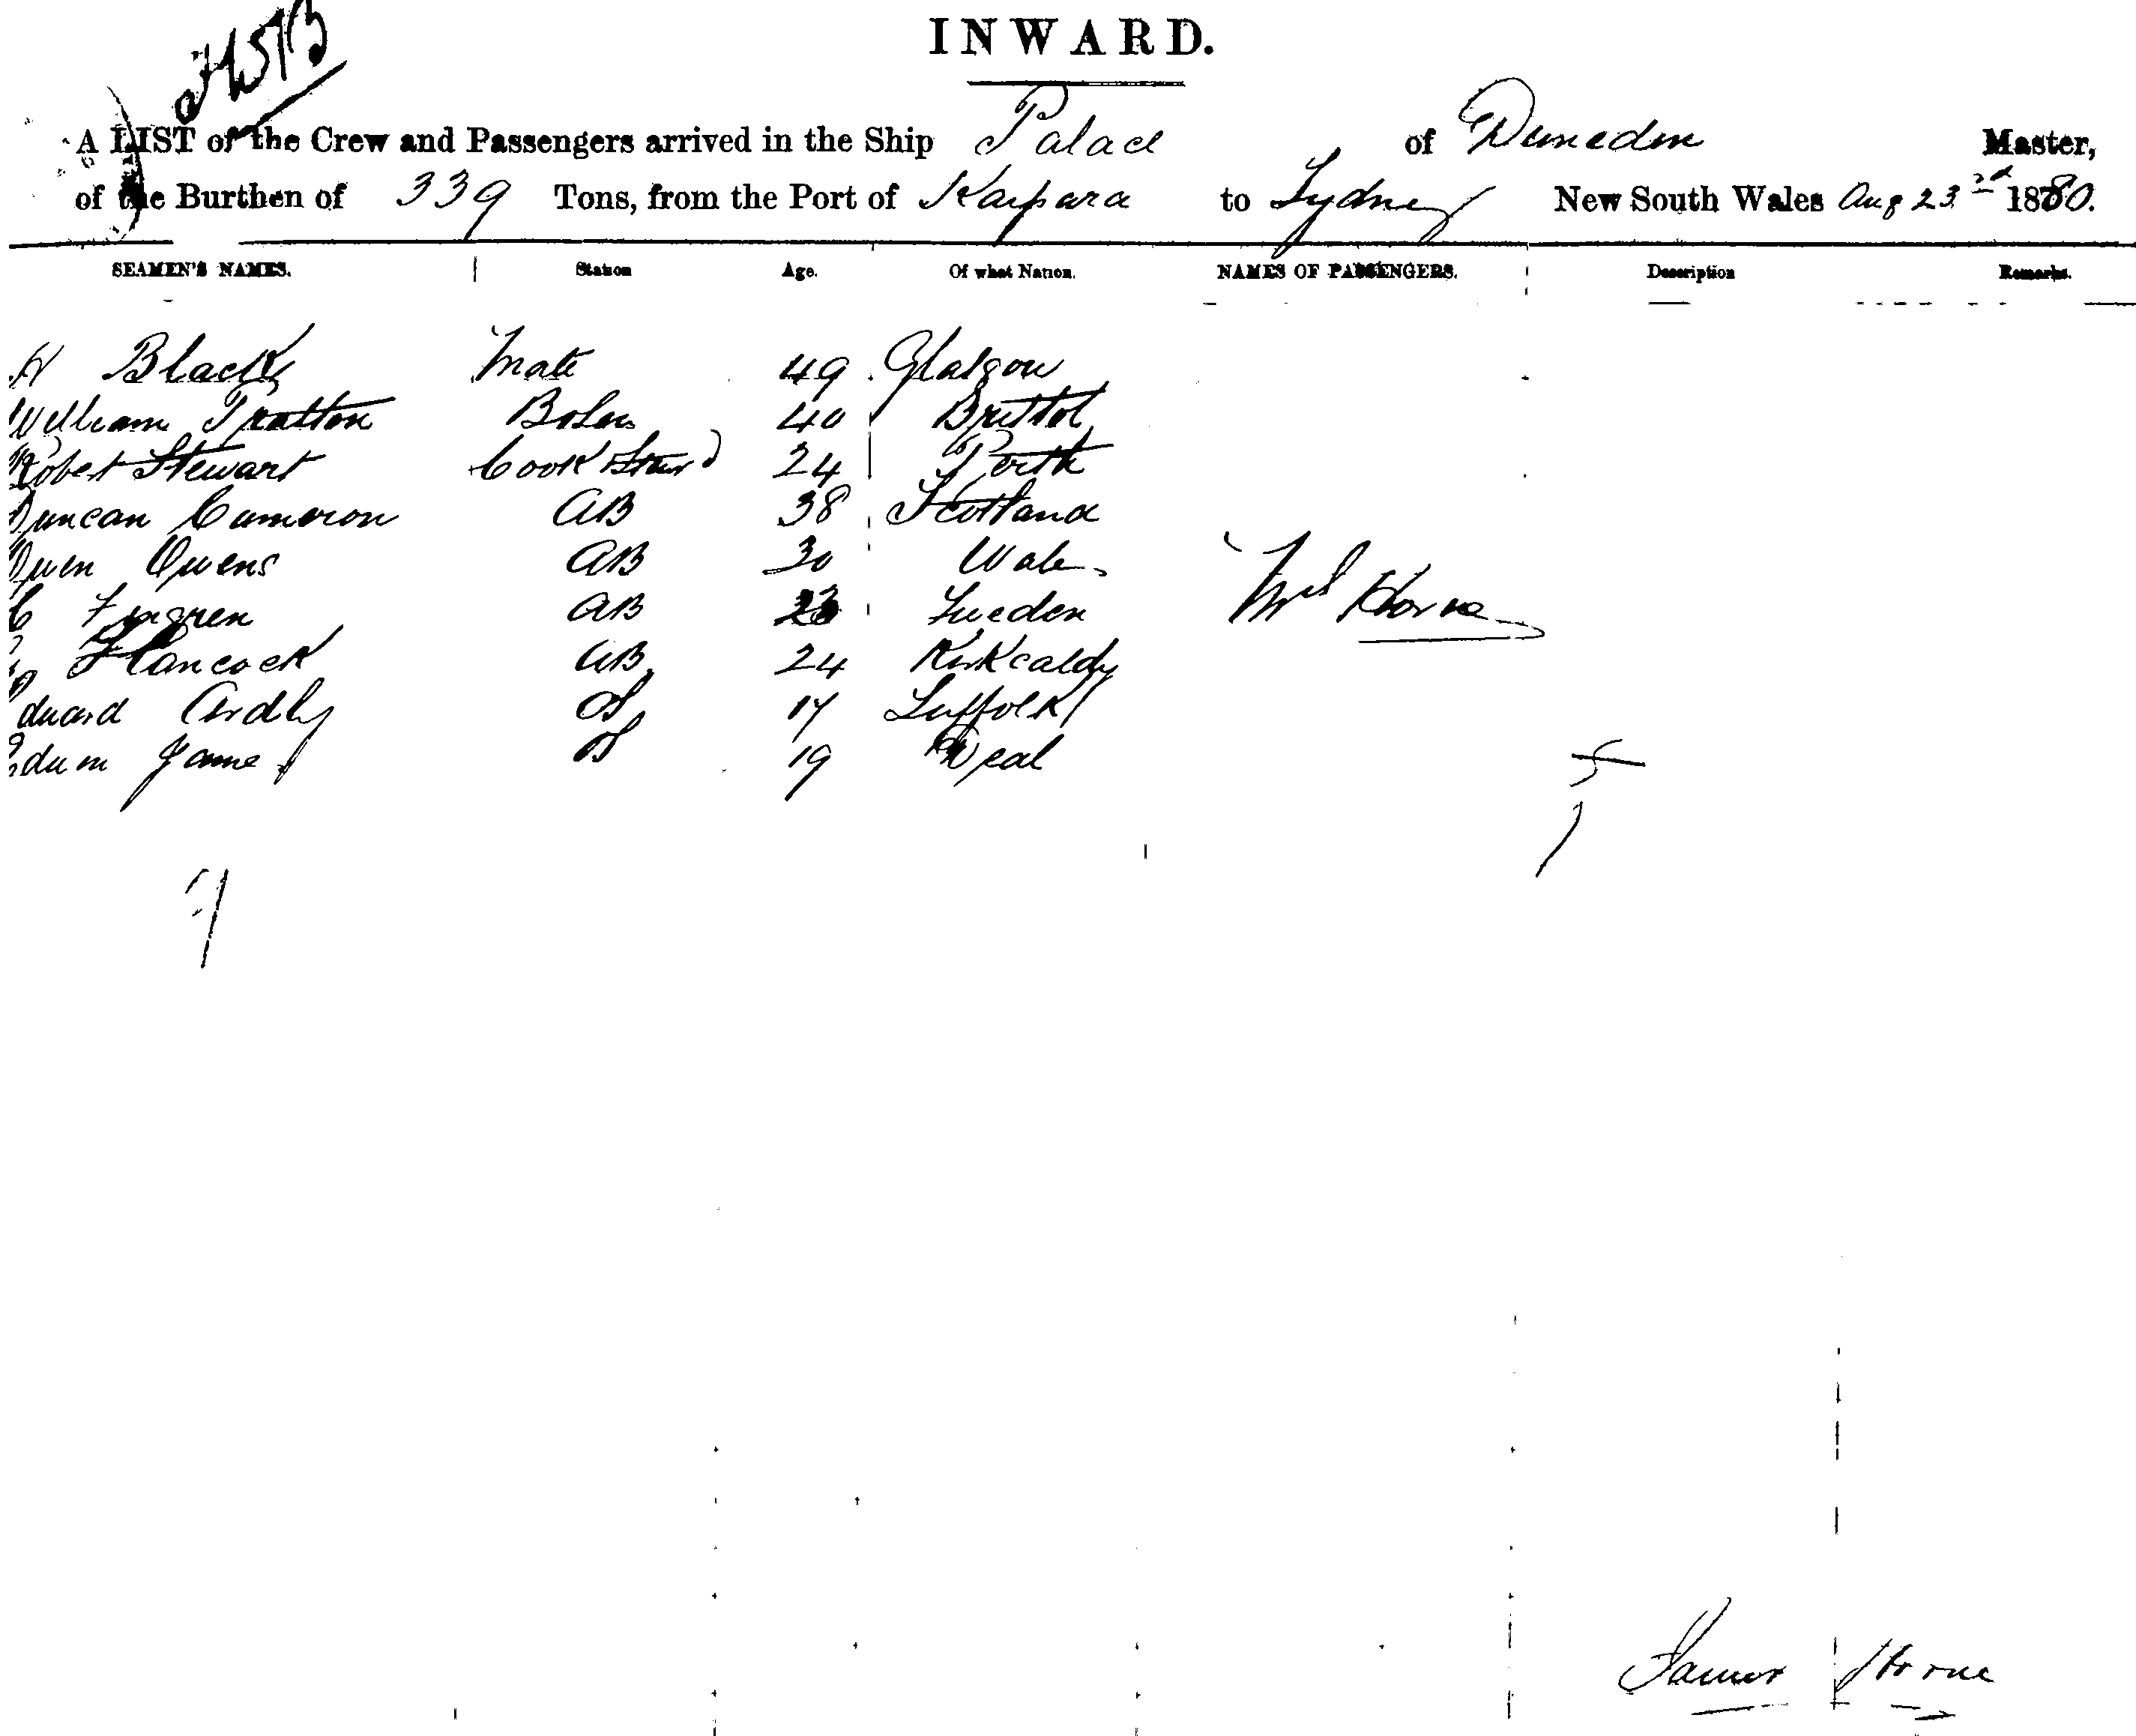 INWARD.
A LIST of the Crew and Passengers arrived in the Ship Palace of Dunedin Master,
of the Burthen of 339 Tons, from the Port of Kaipara to Sydney New South Wales Aug 23rd 1880.
SEAMEN'S NAMES. Station Age. Of what Nation. NAMES OF PASSENGERS. Description Remarks.
H Black Mate 49 Glasgow
William Tratton Bosn 40 Bristol
Robert Stewart Cook Stewd 24 Perth
Duncan Cameron AB 38 Scotland
Owen Owens AB 30 Wales
AB Sweden Mrs Horne
Hancock AB 24 Kirkcaldy
Edward Ardly OS 17 Suffolk
James OS 19 Deal
James Horne